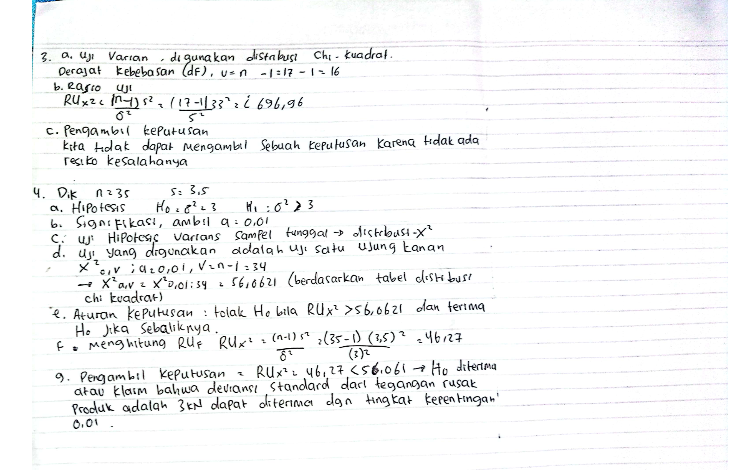 3. a. Uji Varian, digunakan distribusi Chi-kuadrat.
Derajat kebebasan (df), v = n - 1 = 17 - 1 = 16
b. Rasio uji
RUx2 = (n-1) s² = (17-1) 33² = 696,96
σ² 5²
c. Pengambil keputusan
kita tidak dapat mengambil sebuah keputusan karena tidak ada
resiko kesalahanya
4. Dik n = 35 s = 3,5
a. Hipotesis H₀ = σ² = 3 H₁ : σ² > 3
b. Signifikasi, ambil α = 0,01
c. uji Hipotesis varians sampel tunggal → distribusi-X²
d. uji yang digunakan adalah uji satu ujung kanan
X²α,v ; α = 0,01, V = n-1 = 34
→ X²α,v = X²0,01:34 = 56,0621 (berdasarkan tabel distribusi
chi kuadrat)
e. Aturan keputusan : tolak H₀ bila RUx² > 56,0621 dan terima
H₀ jika sebaliknya.
f. menghitung RUF RUx² = (n-1) s² = (35-1) (3,5)² = 46,27
σ² (3)²
g. Pengambil keputusan = RUx² = 46,27 < 56,061 → H₀ diterima
atau klaim bahwa deviansi standard dari tegangan rusak
Produk adalah 3kN dapat diterima dgn tingkat kepentingan
0,01.